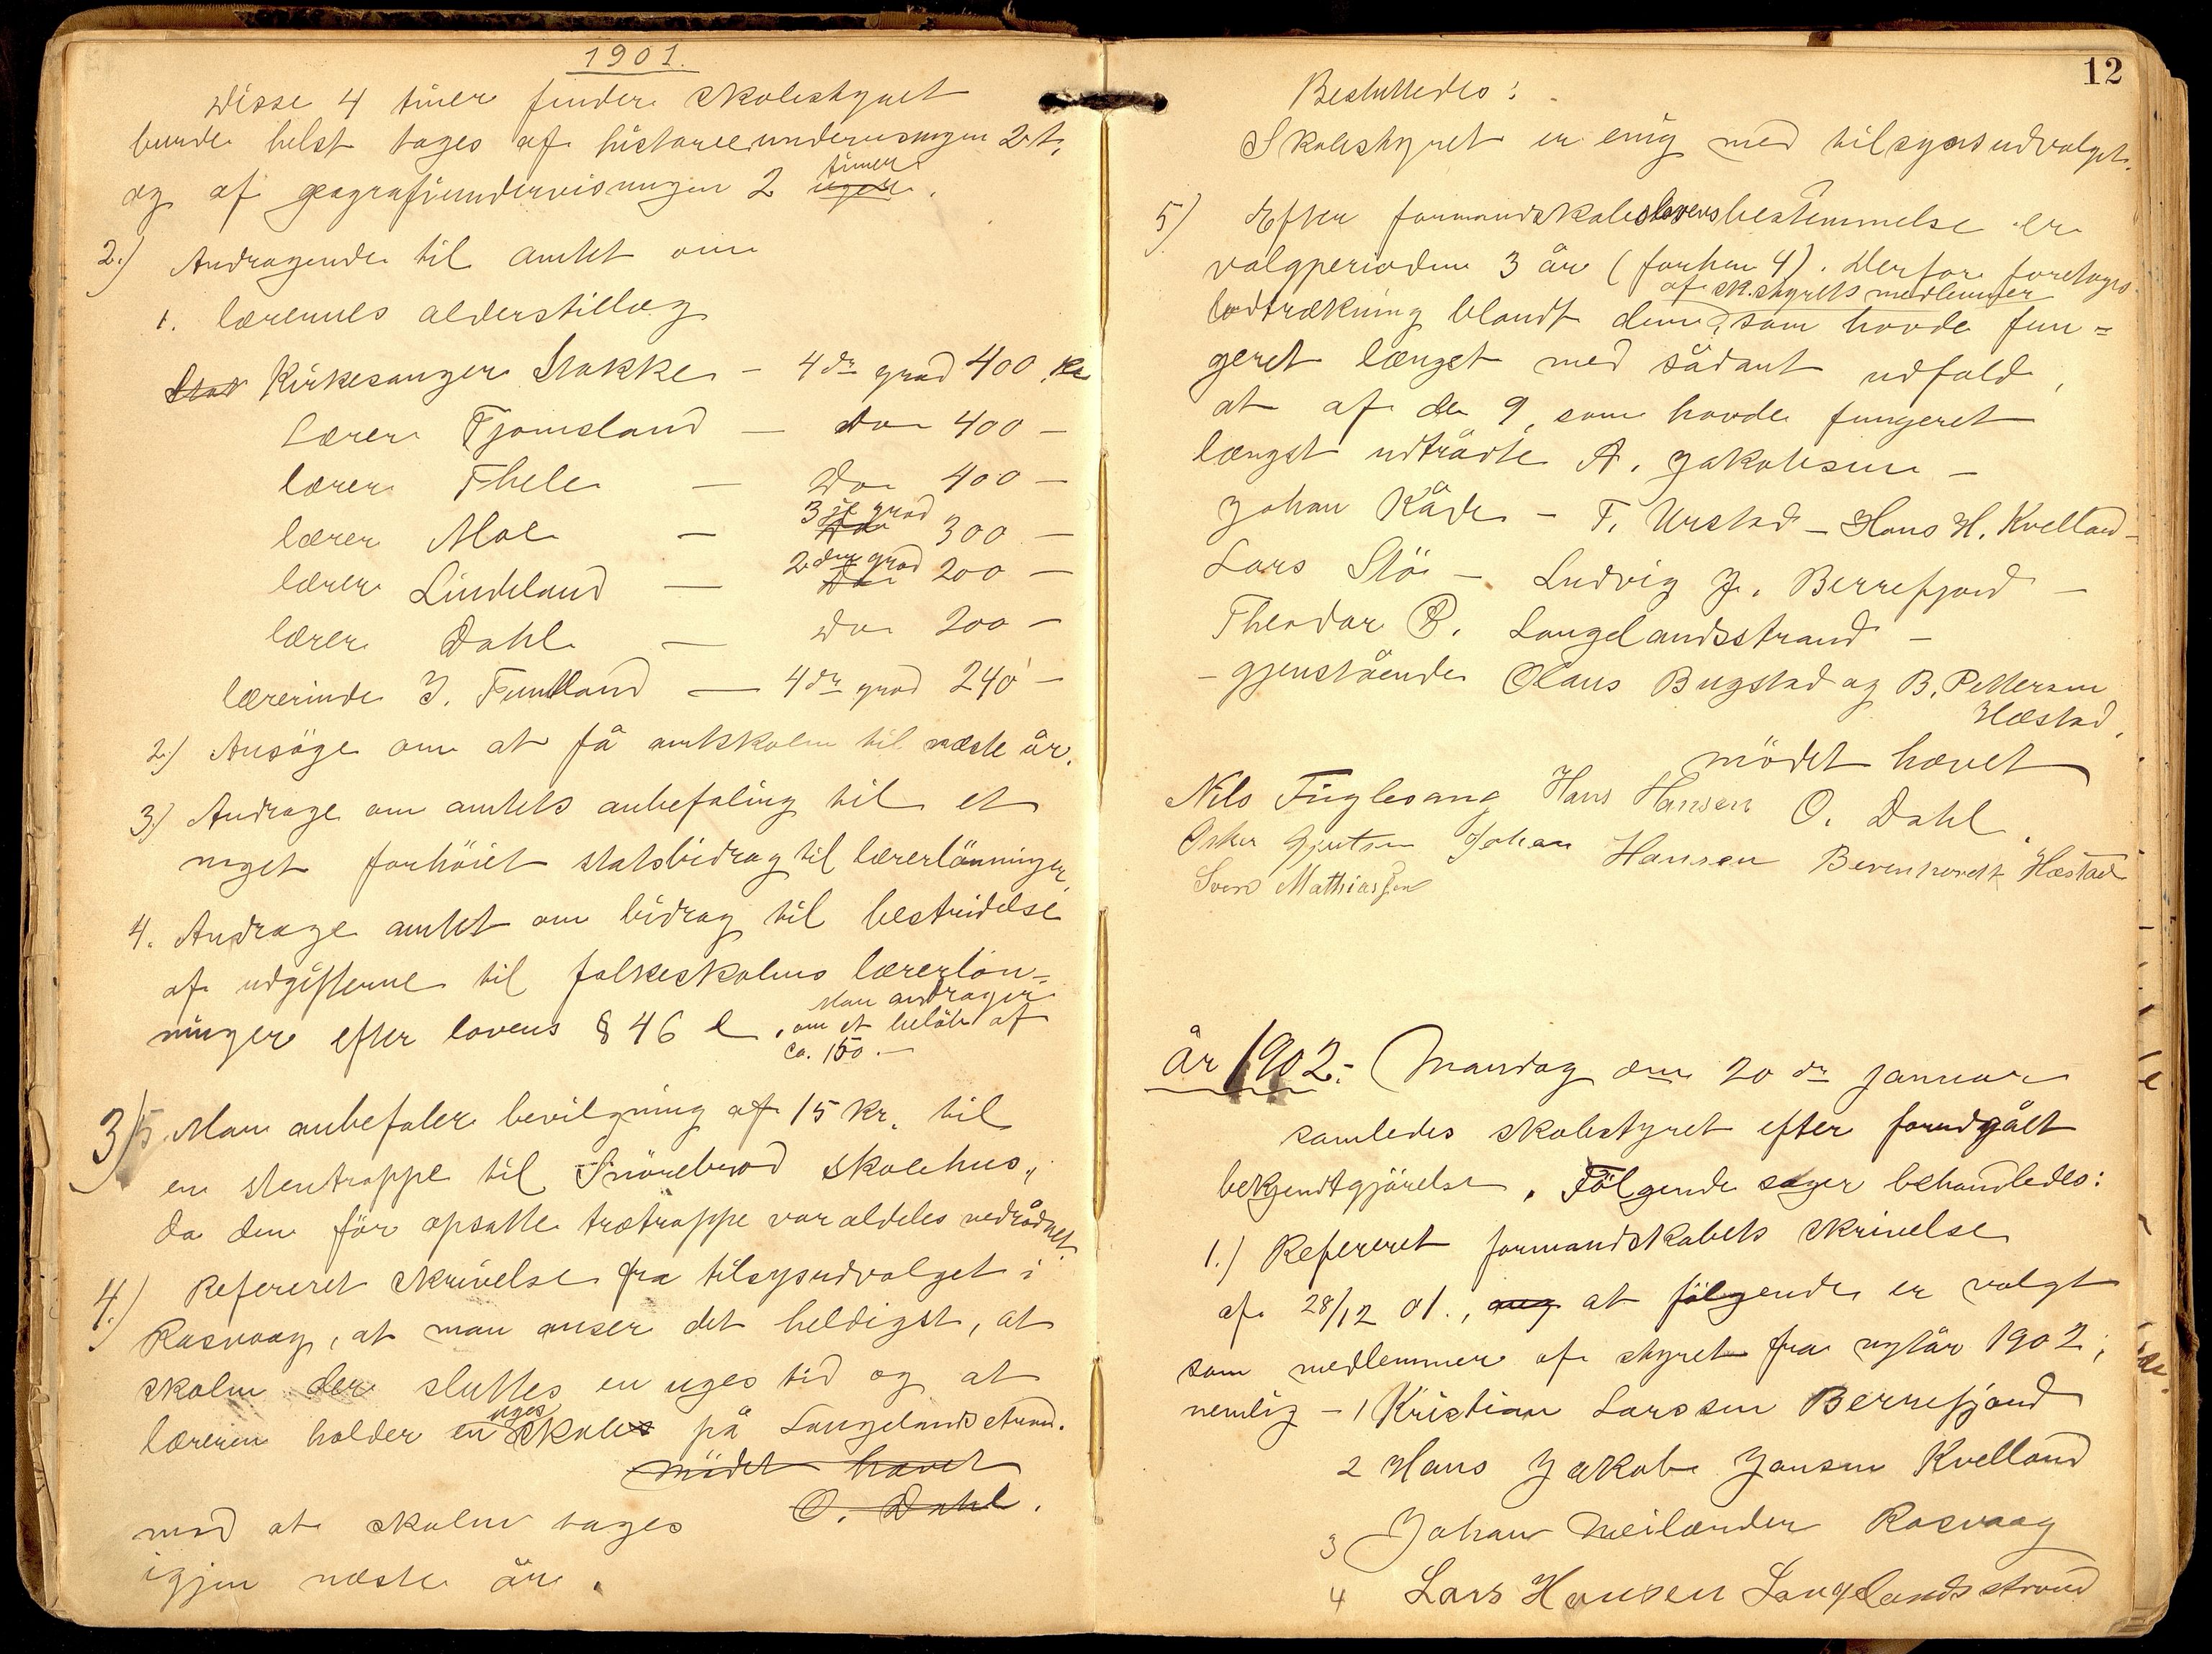 1901.
Disse 4 timer finder skolestyret
burde helst tages af historieundervisningen 2 t.
og af geografiundervisningen 2 timer uger.
2.) Andragende til amtet om
1. lærernes alderstillæg
Kirkesanger Stakke – 4de grad 400 Kr
lærer Fjomeland – do 400 –
lærer Thele – do 400 –
lærer Moe – 3je grad 300 –
lærer Lindeland – 2den grad 200 –
lærer Dahl – do 200 –
lærerinde J. Funtland – 4de grad 240 –
2.) Ansøge om at få amtskolen til næste år.
3) Andrage om amtets anbefaling til et
noget forhöiet statsbidrag til lærerlönninger
4. Andrage amtet om bidrag til bestridelse
af udgifterne til folkeskolens lærerlön=
ninger efter lovens § 46 e, man andrager
om et belöb af
ca. 150.–
3/5. Man anbefaler bevilgning af 15 kr. til
en stentrappe til Snörebrod skolehus,
da den för opsatte trætrappe var aldeles nedrådnet.
4.) Refereret skrivelse fra tilsynsudvalget i
Rasvaag, at man anser det heldigst, at
skolen der sluttes en uges tid og at
læreren holder en uges skole på Langelandsstrand.
mödet hævet
O. Dahl.
mod at skolen tages
igjen næste år.
12
Besluttedes:
Skolestyret er enig med tilsynsudvalget.
5) Efter formandskabslovens bestemmelse er
valgperioden 3 år (forhen 4). Derfor foretages
lodtrækning blandt dem af sk.styrets medlemmer, som havde fun=
geret længst med sådant udfald,
at af de 9, som havde fungeret
længst udtrådte A. Jakobsen –
Johan Kåde – T. Urstad – Hans H. Kvelland –
Lars Stö – Ludvig J. Berrefjord –
Theodor B. Langelandsstrand –
– gjenstående Olaus Bugstad og B. Pettersen
Hæstad.
mödet hævet
Nils Fuglesang Hans Hansen O. Dahl.
Johan Hansen Berenhardt Hæstad
Sven Mathiassen
år 1902.– Mandag den 20de januar
samledes skolestyret efter forudgået
bekjendtgjörelse. Fölgende sager behandledes:
1.) Refereret formandskabets skrivelse
af 28/12 01., at fölgende er valgt
som medlemmer af styret fra nytår 1902;
nemlig – 1 Kristian Larssen Berrefjord
2 Hans Jakob Jansen Kvelland
3 Johan Meilænder Rasvaag
4 Lars Hansen Langelandsstrand